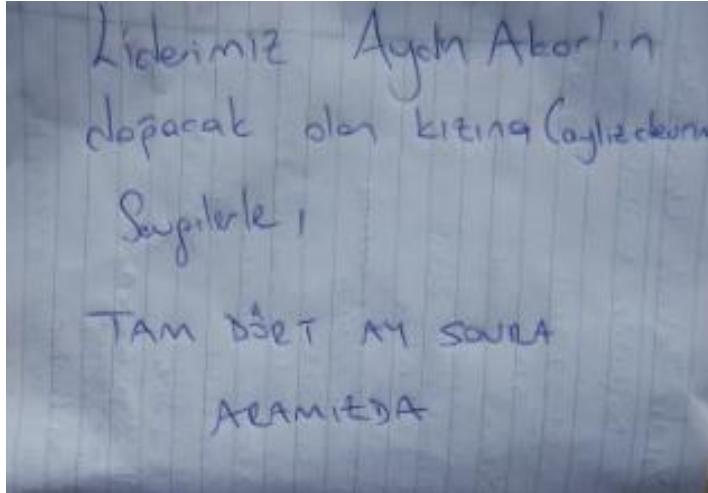 Liderimiz Aydın Akarlı'n
doğacak olan kızına
Sevgilerle,
TAM DÖRT AY SONRA
ARAMIZDA